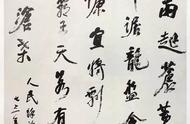 雨起蒼黄
踞龍盤今
慷宜將剩
霸王天若有
滄桑
人民
七三